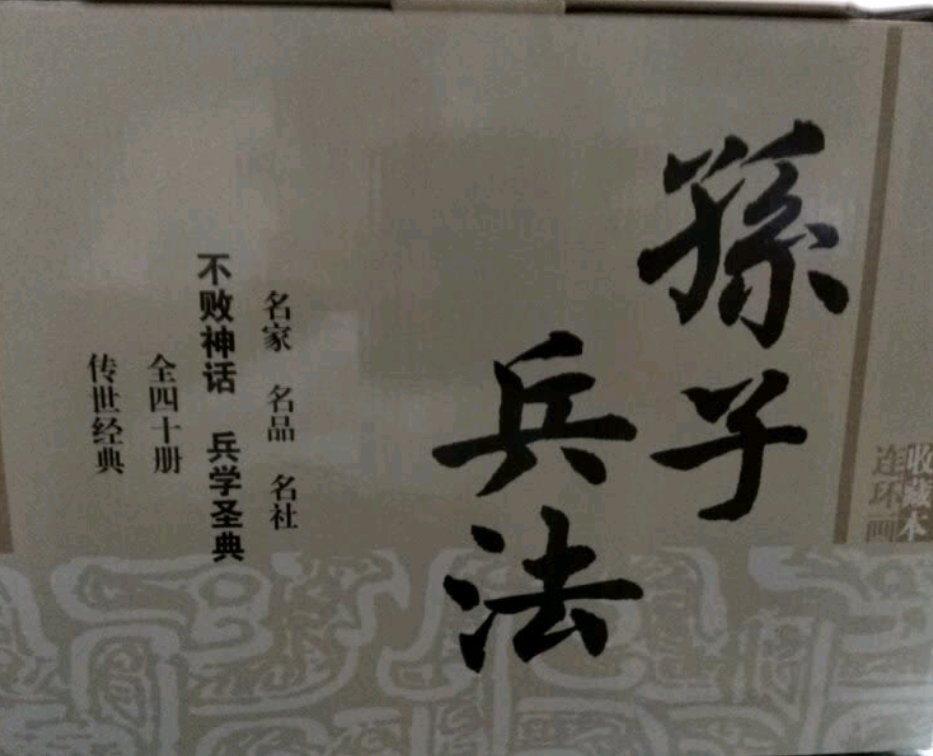 收藏本
连环画
孫子
兵法
名家 名品 名社
不败神话 兵学圣典
全四十册
传世经典